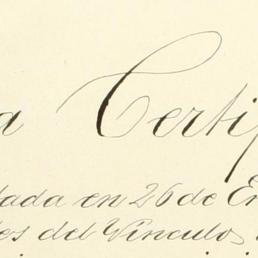 a Certif
dada en 26 de En
es del Vínculo